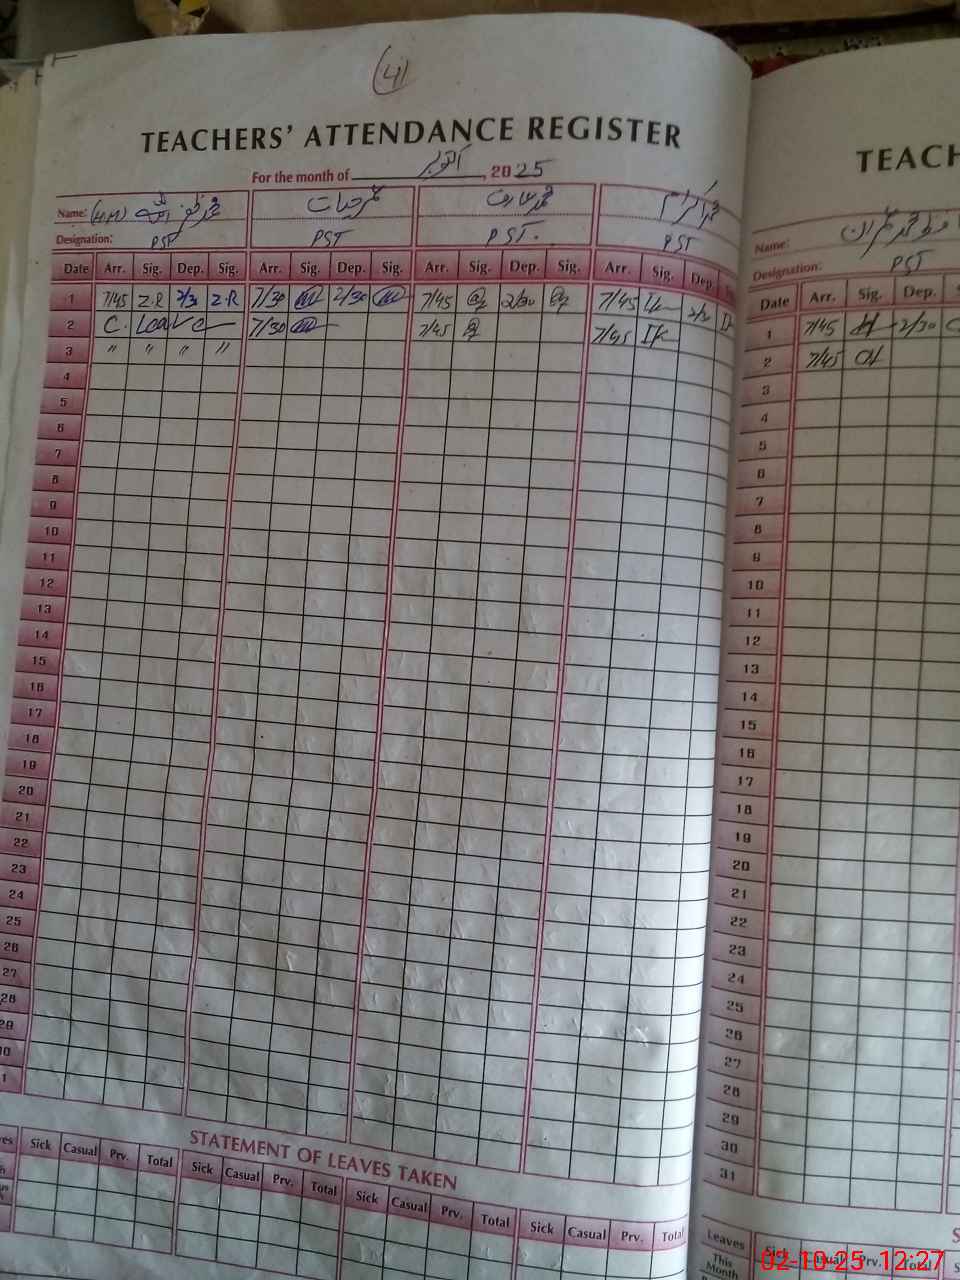 (41)
TEACHERS' ATTENDANCE REGISTER
For the month of اکتوبر, 2025
Name: (H.M)
Designation: PST PST PST. PST
Date Arr. Sig. Dep. Sig. Arr. Sig. Dep. Sig. Arr. Sig. Dep. Sig. Arr. Sig. Dep.
1 7/45 Z.R 2/30 Z.R 7/30 2/30 7/45 2/30 7/45
2 C. Leave 7/30 7/45 7/45 IK
3 " " " "
4
5
6
7
8
9
10
11
12
13
14
15
16
17
18
19
20
21
22
23
24
25
26
27
28
29
30
31
STATEMENT OF LEAVES TAKEN
Sick Casual Prv. Total Sick Casual Prv. Total Sick Casual Prv. Total Sick Casual Prv. Total
TEACH
Name:
Designation: PST
Date Arr. Sig. Dep.
1 7/45 2/30
2 7/45
3
4
5
6
7
8
9
10
11
12
13
14
15
16
17
18
19
20
21
22
23
24
25
26
27
28
29
30
31
Leaves Sick Casual Prv. Total
This
Month
02-10-25 12:27